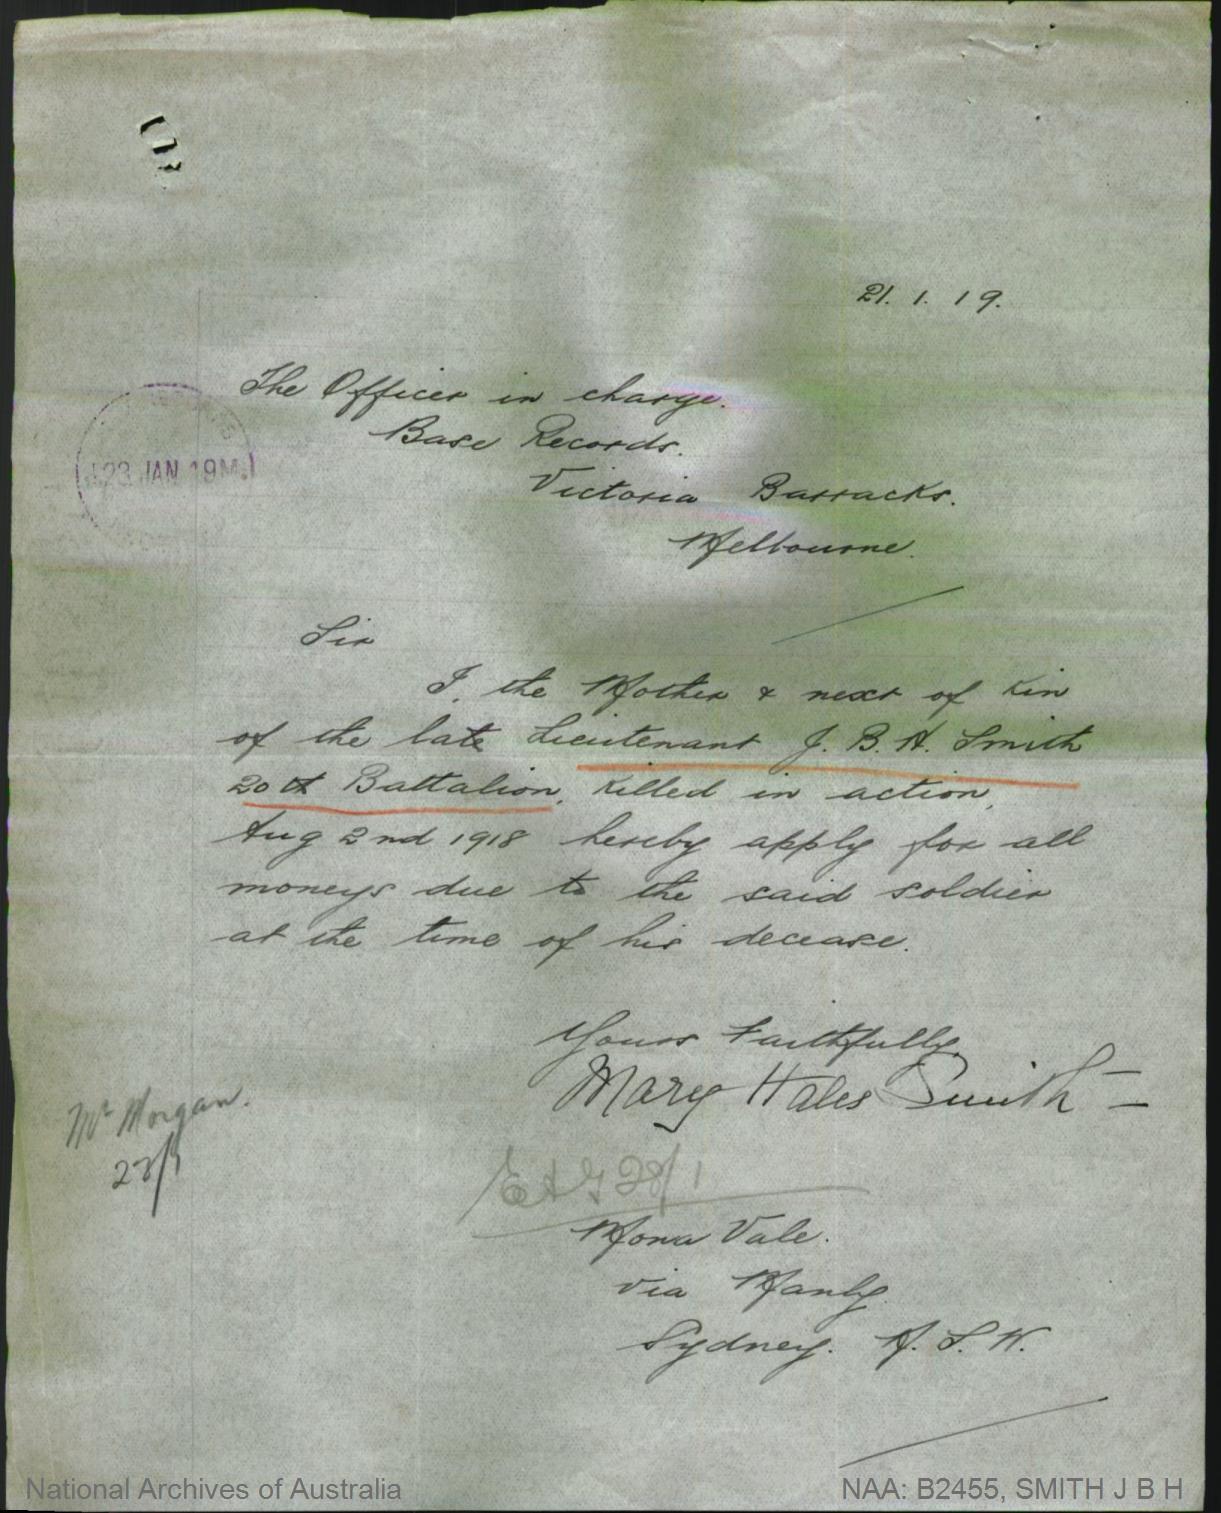 21. 1. 19.
The Officer in charge.
Base Records.
23 JAN 19
Victoria Barracks.
Melbourne.
Sir
I, the Mother & next of kin
of the late Lieutenant J. B. H. Smith
20th Battalion, killed in action,
Aug 2nd 1918 hereby apply for all
moneys due to the said soldier
at the time of his decease.
Yours Faithfully,
Mary Hales Smith —
Mr Morgan.
Mona Vale.
via Manly
Sydney. N. S. W.
National Archives of Australia
NAA: B2455, SMITH J B H